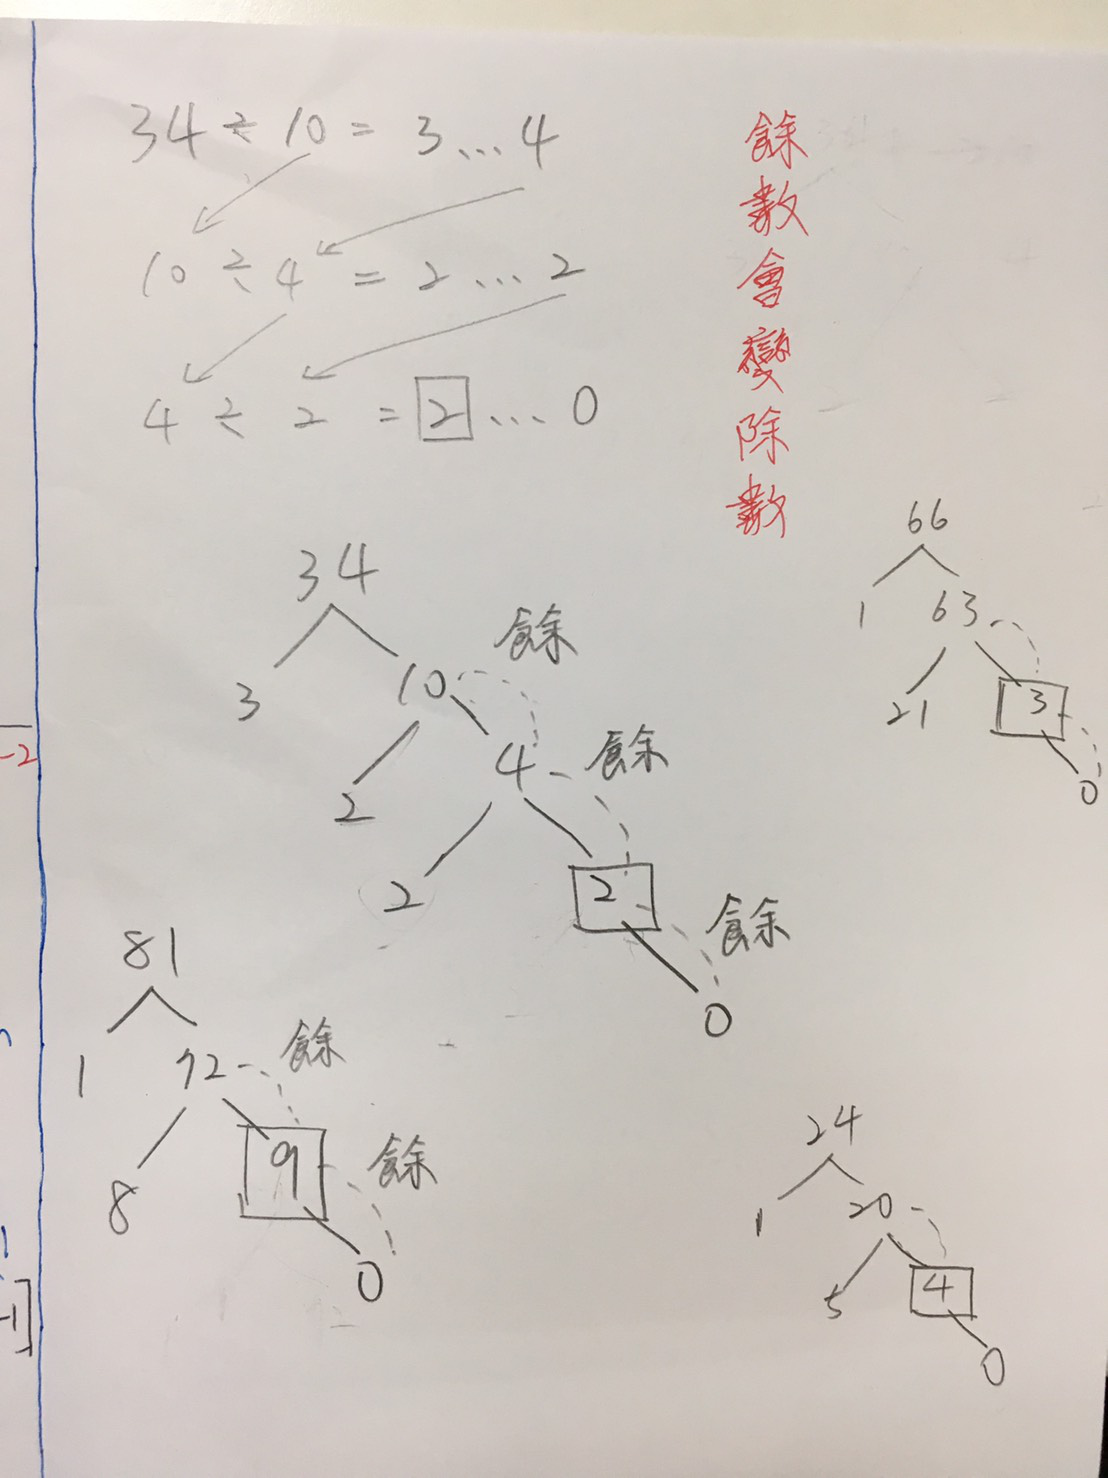 34 ÷ 10 = 3...4
10 ÷ 4 = 2...2
4 ÷ 2 = 2...0
餘數會變除數
34
3 10 餘
2 4 餘
2 2 餘
0
66
1 63
21 3
0
81
1 72 餘
8 9 餘
0
24
1 20
5 4
0
-2
-1]